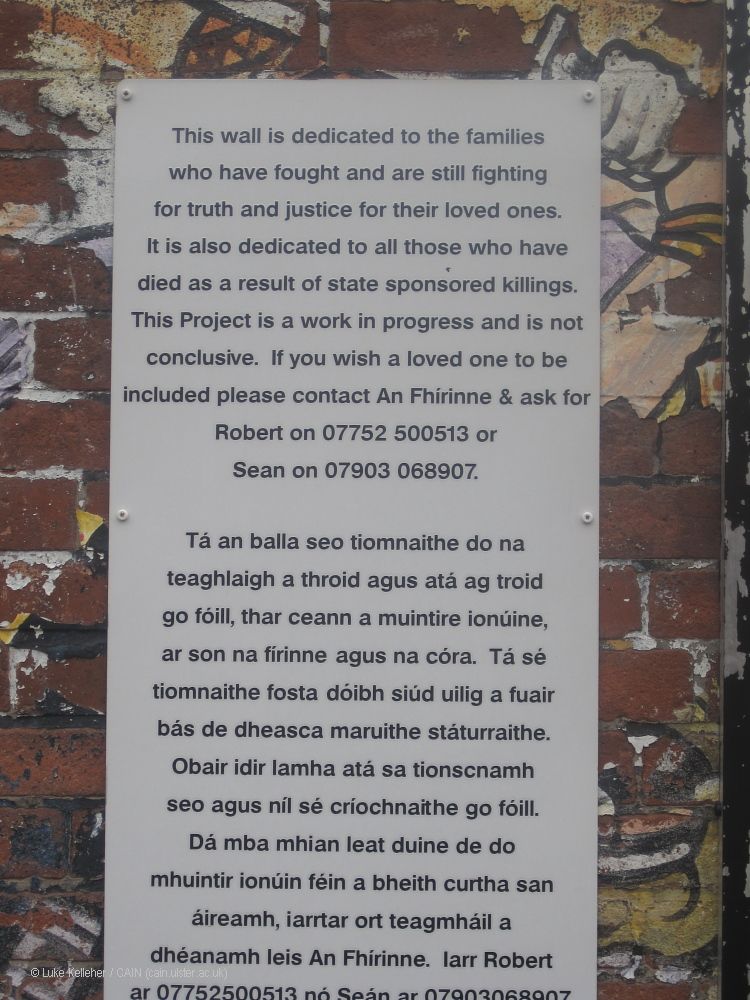 This wall is dedicated to the families
who have fought and are still fighting
for truth and justice for their loved ones.
It is also dedicated to all those who have
died as a result of state sponsored killings.
This Project is a work in progress and is not
conclusive. If you wish a loved one to be
included please contact An Fhírinne & ask for
Robert on 07752 500513 or
Sean on 07903 068907.
Tá an balla seo tiomnaithe do na
teaghlaigh a throid agus atá ag troid
go fóill, thar ceann a muintire ionúine,
ar son na fírinne agus na córa. Tá sé
tiomnaithe fosta dóibh siúd uilig a fuair
bás de dheasca maruithe státurraithe.
Obair idir lamha atá sa tionscnamh
seo agus níl sé críochnaithe go fóill.
Dá mba mhian leat duine de do
mhuintir ionúin féin a bheith curtha san
áireamh, iarrtar ort teagmháil a
dhéanamh leis An Fhírinne. Iarr Robert
ar 07752500513 nó Seán ar 07903068907
© Luke Kelleher / CAIN (cain.ulster.ac.uk)